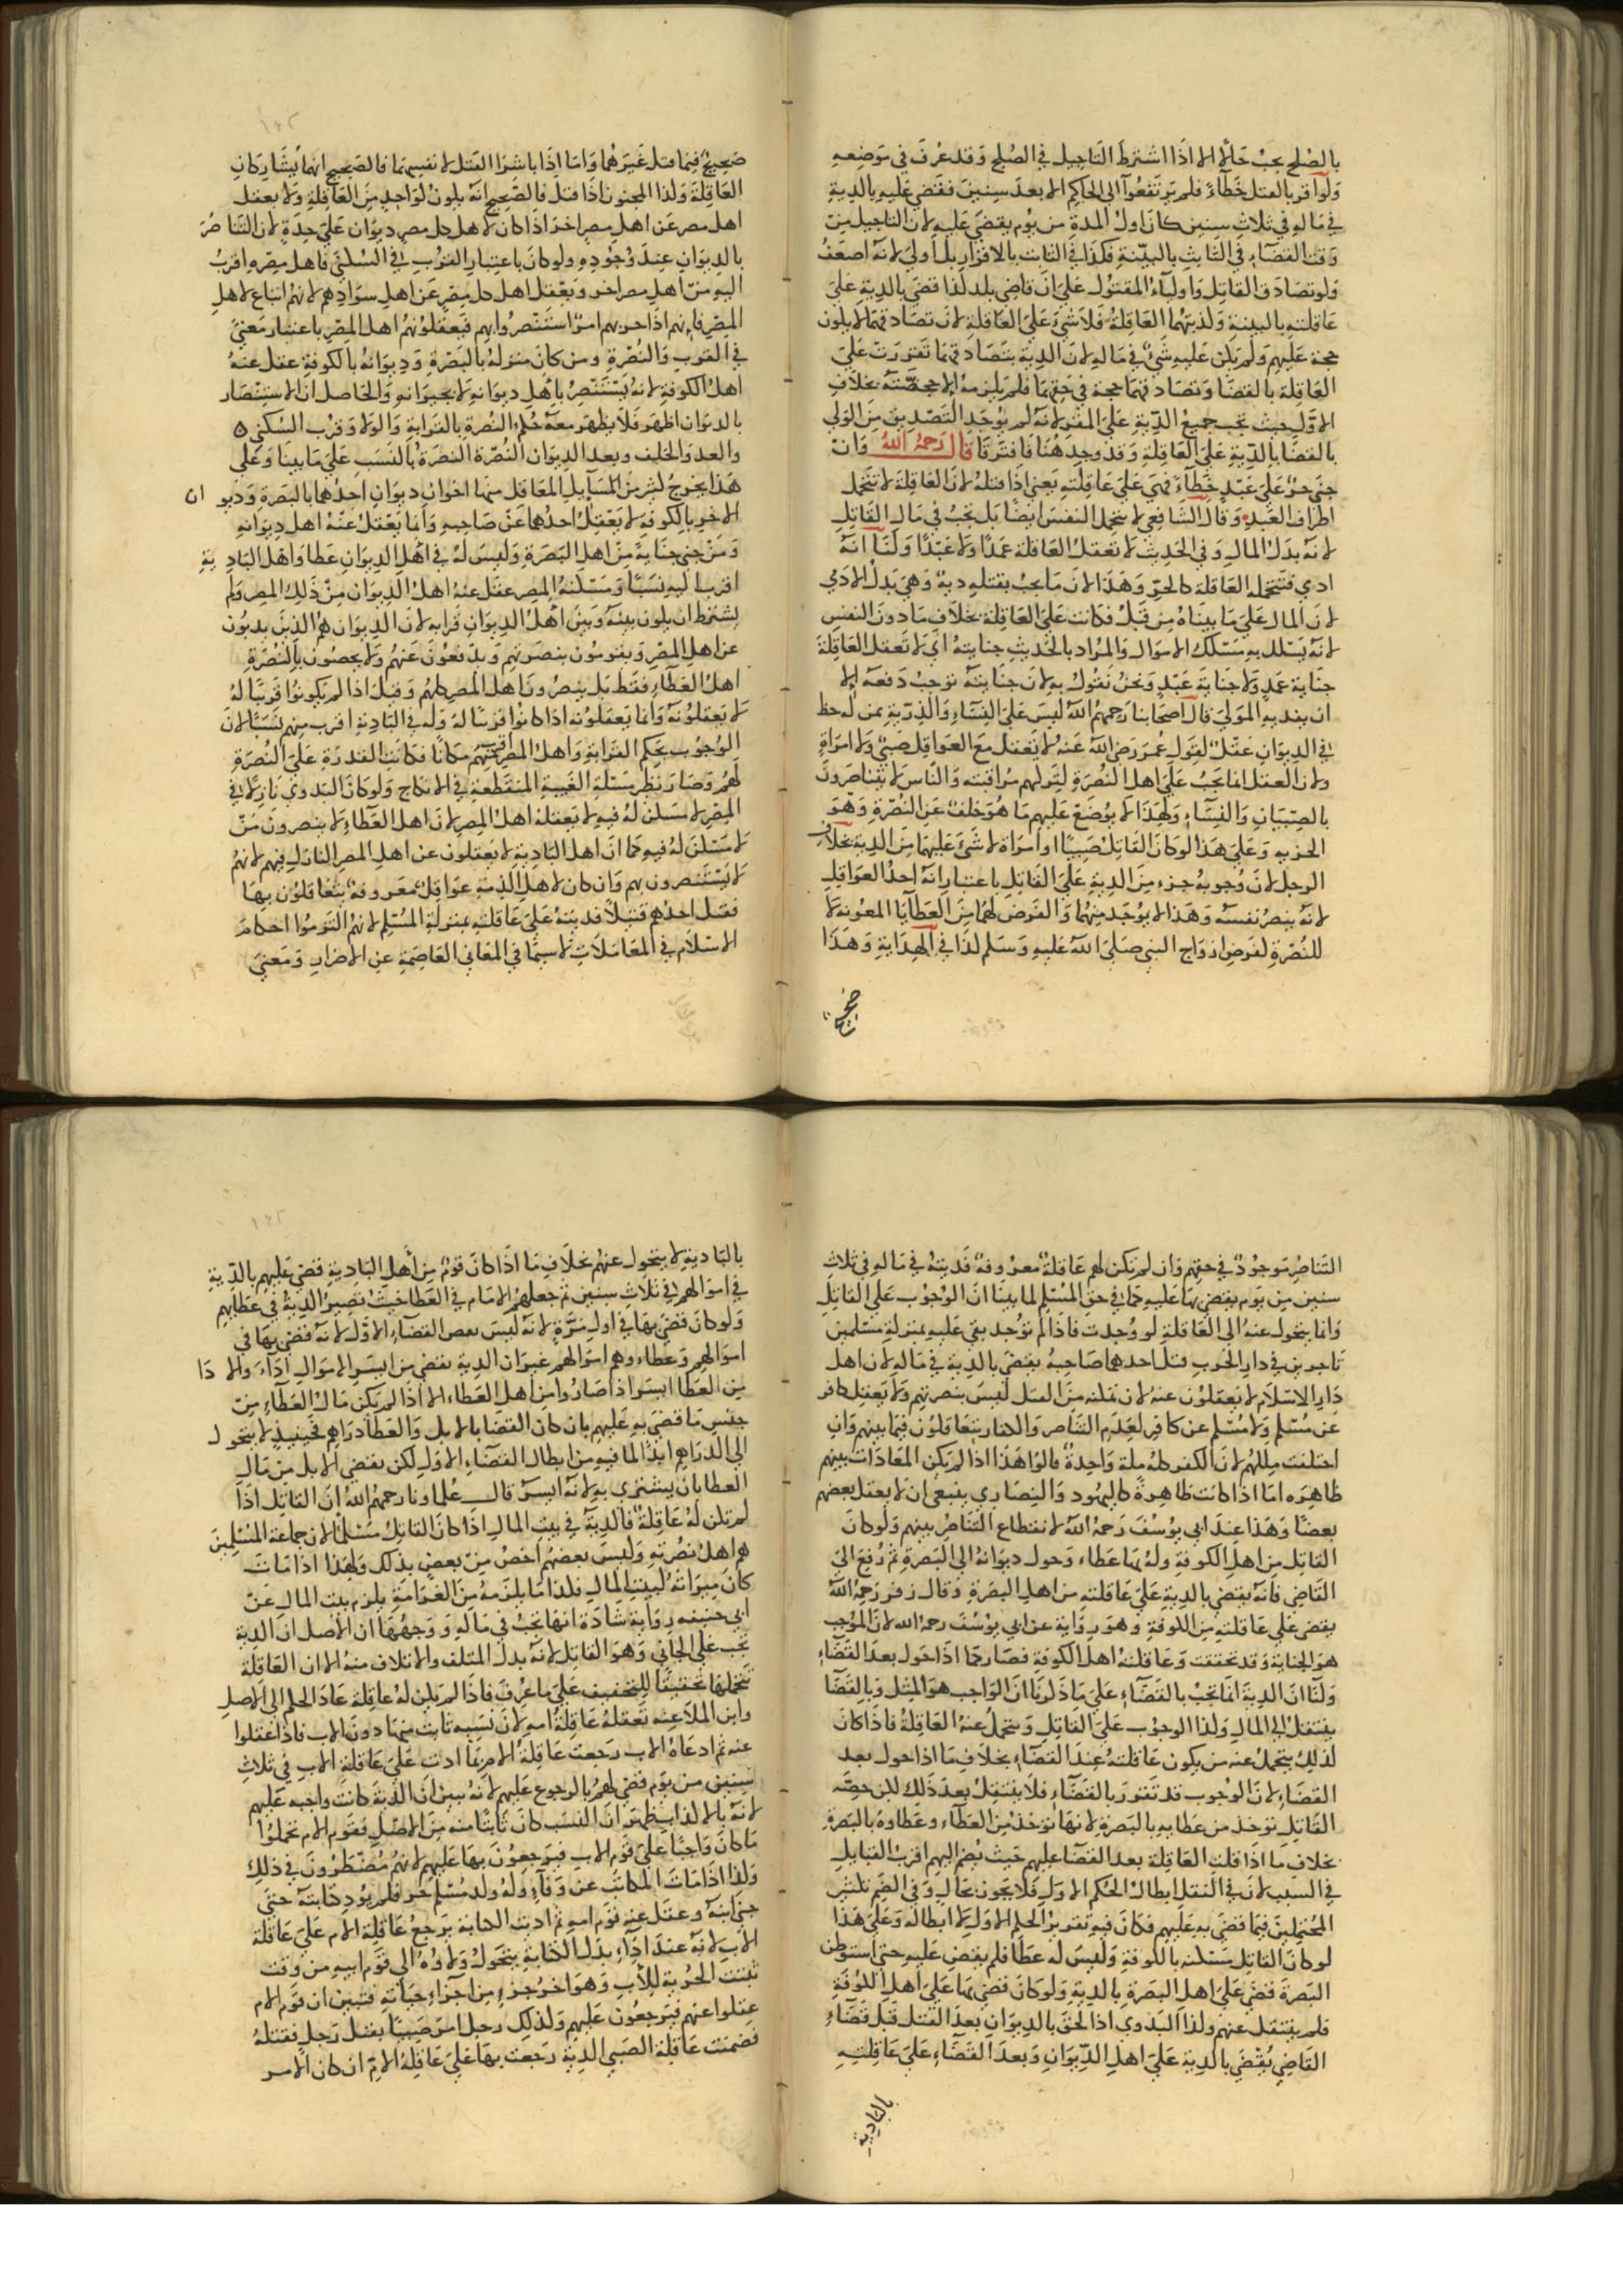 بالصلح يجب حالا الا اذا اشترط التاجيل في الصلح وقد عرف في موضعه
ولو اقر بالقتل خطاء فلم يرتفعوا الى الحاكم الا بعد سنين فقضي عليه بالدية
في ماله في ثلاث سنين كان اول المدة من يوم يقضى عليه لان التاجيل من
وقت القضاء في الثابت بالبينة فكذا في الثابت بالاقرار بل اولى لانه اضعف
ولو تصادق القاتل واولياء المقتول على ان قاضي بلد كذا قضى بالدية على
عاقلته بالبينة وكذبتهما العاقلة فلا شي على العاقلة لان تصادقهما لا يكون
حجة عليهم ولم يكن عليه شئ في ماله لان الدية بتصادقهما تقررت على
العاقلة بالقضا وتصادقهما حجة في حقهما فلم يلزمه الا حصته بخلاف
الاول حيث تجب جميع الدية على المقر لانه لم يوجد التصديق من الولي
بالقضا بالدية على العاقلة وقد وجد هنا فافترقا قال رحمه الله وان
جنى حر على عبد خطاء فهي على عاقلته يعني اذا قتله لان العاقلة لا تتحمل
اطراف العبد وقال الشافعي لا تتحمل النفس ايضا بل تجب في مال القاتل
لانه بدل المال وفي الحديث لا تعقل العاقلة عمدا ولا عبدا ولنا انه
ادمي فتتحمله العاقلة كالحر وهذا لان ما يجب بقتله دية وهي بدل الادمي
لان المال على ما بيناه من قبل فكانت على العاقلة بخلاف ما دون النفس
لانه يسلك به مسلك الاموال والمراد بالحديث جنايته اي لا تعقل العاقلة
جناية عمد ولا جناية عبد ونحن نقول به لان جنايته توجب دفعه الا
ان يفديه المولى قال اصحابنا رحمهم الله ليس على النساء والذرية ممن له حظ
في الديوان عقل لقول عمر رضي الله عنه لا يعقل مع العواقل صبي ولا امراة
ولان العقل انما يجب على اهل النصرة لتركهم مراقبته والناس لا يتناصرون
بالصبيان والنساء ولهذا لا يوضع عليهم ما هو خلف عن النصرة وهو
الجزية وعلى هذا لو كان القاتل صبيا او امراة لا شئ عليهما من الدية بخلاف
الرجل لان وجوب جزء من الدية على القاتل باعتبار انه احد العواقل
لانه ينصر نفسه وهذا لا يوجد منهما والفرض لهما من العطايا المعونة لا
للنصرة لفرض ازواج النبي صلى الله عليه وسلم كذا في الهداية وهذا
صحيح
صحيح فيما قتل غيرهما واما اذا باشرا القتل لانفسهما فالصحيح انهما يشاركان
العاقلة وكذا المجنون اذا قتل فالصحيح انه يكون كواحد من العاقلة ولا يعقل
اهل مصر عن اهل مصر اخر اذا كان لاهل كل مصر ديوان على حدة لان التناصر
بالديوان عند وجوده ولو كان باعتبار القرب في السكنى فاهل مصره اقرب
اليه من اهل مصر اخر ويعقل اهل كل مصر عن اهل سوادهم لانهم اتباع لاهل
المصر فانهم اذا حزبهم امر استنصروا بهم فيعقلونهم اهل المصر باعتبار معنى
في القرب والنصرة ومن كان منزله بالبصرة وديوانه بالكوفة عقل عنه
اهل الكوفة لانه يستنصر باهل ديوانه لا بجيرانه والحاصل ان الاستنصار
بالديوان اظهر فلا يظهر معه حكم النصرة بالقرابة والولا وقرب السكنى
والعد والحلف وبعد الديوان النصرة النصرة بالنسب على ما بينا وعلى
هذا يخرج كثير من المسايل المعاقل منها اخوان ديوان احدهما بالبصرة وديوان
الاخر بالكوفة لا يعقل احدهما عن صاحبه وانما يعقل عنه اهل ديوانه
ومن جنى جناية من اهل البصرة وليس له في اهل الديوان عطا واهل البادية
اقرب اليه نسبا ومسكنه المصر عقل عنه اهل الديوان من ذلك المصر ولم
يشترط ان يكون بينه وبين اهل الديوان قرابه لان الديوان هم الذين يذبون
عن اهل المصر ويقومون بنصرتهم ويدفعون عنهم ولا يخصون بالنصرة
اهل العطاء فقط بل ينصرون اهل المصر كلهم وقيل اذا لم يكونوا قريبا له
لا يعقلونه وانما يعقلونه اذا كانوا قريبا له وله في البادية اقرب منهم نسبا لان
الوجوب بحكم القرابة واهل المصر اقرب منهم مكانا فكانت القدرة على النصرة
لهم وصار نظير مسئلة الغيبة المنقطعة في الانكاح ولو كان البدوي نازلا في
المصر لا مسكن له فيه لا يعقله اهل المصر لان اهل العطاء لا ينصرون من
لا مسكن له فيه كما ان اهل البادية لا يعقلون عن اهل المصر النازل فيهم لانهم
لا يستنصرون بهم وان كان لاهل الذمة عواقل معروفة يتعاقلون بها
فقتل احدهم قتيلا فديته على عاقلته بمنزلة المسلم لانهم التزموا احكام
الاسلام في المعاملات لا سيما في المعاني العاصمة عن الاضرار ومعنى
التناصر موجود في حقهم وان لم يكن لهم عاقلة معروفة فديته في ماله في ثلاث
سنين من يوم يقضى بها عليه كما في حق المسلم لما بينا ان الوجوب على القاتل
وانما يتحول عنه الى العاقلة لو وجدت فاذا لم توجد بقي عليه بمنزلة مسلمين
تاجرين في دار الحرب قتل احدهما صاحبه يقضى بالدية في ماله لان اهل
دار الاسلام لا يعقلون عنه لان تمكنه من القتل ليس بنصرتهم ولا يعقل كافر
عن مسلم ولا مسلم عن كافر لعدم التناصر والكفار يتعاقلون فيما بينهم وان
اختلفت مللهم لان الكفر كله ملة واحدة قالوا هذا اذا لم يكن المعادات بينهم
ظاهره اما اذا كانت ظاهرة كاليهود والنصارى ينبغي ان لا يعقل بعضهم
بعضا وهذا عند ابي يوسف رحمه الله لانقطاع التناصر بينهم ولو كان
القاتل من اهل الكوفة وله بها عطاء وحول ديوانه الى البصرة ثم رفع الى
القاضي فانه يقضي بالدية على عاقلته من اهل البصرة وقال زفر رحمه الله
يقضي على عاقلته من الكوفة وهو رواية عن ابي يوسف رحمه الله لان الموجب
هو الجناية وقد تحققت وعاقلته اهل الكوفة فصار كما اذا حول بعد القضاء
ولنا ان الدية انما تجب بالقضاء على ما ذكرنا ان الواجب هو المثل وبالقضا
ينتقل الى المال وكذا الوجوب على القاتل ويتحمل عنه العاقلة فاذا كان
كذلك يتحمل عنه من يكون عاقلته عند القضاء بخلاف ما اذا حول بعد
القضاء لان الوجوب قد تقرر بالقضاء فلا ينتقل بعد ذلك لكن حصة
القاتل توخذ من عطايه بالبصرة لانها توخذ من العطاء وعطاوه بالبصرة
بخلاف ما اذا قلت العاقلة بعد القضا عليهم حيث يضم اليهم اقرب القبايل
في النسب لان في النقل ابطال الحكم الاول فلا يجوز بحال وفي الضم تكثير
المتحملين فيما قضي به عليهم فكان فيه تقرير الحكم الاول لا ابطاله وعلى هذا
لو كان القاتل مسكنه بالكوفة وليس له عطا فلم يقض عليه حتى استوطن
البصرة قضى على اهل البصرة بالدية ولو كان قضي بها على اهل الكوفة
فلم ينتقل عنهم وكذا البدوي اذا لحق بالديوان بعد القتل قبل قضاء
القاضي يقضى بالدية على اهل الديوان وبعد القضاء على عاقلته
بالبادية
بالبادية لا يتحول عنهم بخلاف ما اذا كان قوم من اهل البادية قضي عليهم بالدية
في اموالهم في ثلاث سنين ثم جعلهم الامام في العطا حيث تصير الدية في عطايهم
ولو كان قضى بها في اول مرة لانه ليس بعض القضاء الاول لانه قضى بها في
اموالهم وعطاء وهم اموالهم غير ان الدية تقضى من ايسر الاموال اداء والادا
من العطا ايسر اذا صاروا من اهل العطاء الا اذا لم يكن مال العطاء من
جنس ما قضي به عليهم بان كان القضا بالابل والعطا دراهم فحينيذ لا يتحول
الى الدراهم ابدا لما فيه من ابطال القضاء الاول لكن يقضى الابل من مال
العطا بان يشترى به لانه ايسر قال علماونا رحمهم الله ان القاتل اذا
لم تكن له عاقلة فالدية في بيت المال اذا كان القاتل مسلما لان جماعة المسلمين
هم اهل نصرته وليس بعضهم اخص من بعض بذلك ولهذا اذا مات
كان ميراثه لبيت المال فلذا ما يلزمه من الغرامة يلزم بيت المال عن
ابي حنيفة رواية شاذة انها تجب في ماله ووجهها ان الاصل ان الدية
تجب على الجاني وهو القاتل لانه بدل المتلف والاتلاف منه الا ان العاقلة
تتحملها تحقيقا للتخفيف على ما عرف فاذا لم يكن له عاقلة عاد الحكم الى الاصل
وابن الملاعنة تعقله عاقلة امه لان نسبه ثابت منها دون الاب فاذا عقلوا
عنه ثم ادعاه الاب رجعت عاقلة الام بما ادت على عاقلة الاب في ثلاث
سنين من يوم قضي لهم بالرجوع عليهم لانه تبين ان الدية كانت واجبه عليهم
لانه بالاكذاب يظهر ان النسب كان ثابتا منه من الاصل فقوم الام تحملوا
ما كان واجبا على قوم الاب فيرجعون بها عليهم لانهم مضطرون في ذلك
وكذا اذا مات المكاتب عن وفاء وله ولد مسلم حر فلم يود كتابته حتى
جنى ابنه وعقل عنه قوم امه ثم اديت الكتابة يرجع عاقلة الام على عاقلة
الاب لانه عند اداء بدل الكتابة يتحول ولاوه الى قوم ابيه من وقت
تثبت الحرية للاب وهو اخر جزء من اجزاء حياته فتبين ان قوم الام
عقلوا عنهم فيرجعون عليهم وكذلك رجل امر صبيا بقتل رجل فقتله
فضمنت عاقلة الصبي الدية رجعت بها على عاقلة الامر ان كان الامر